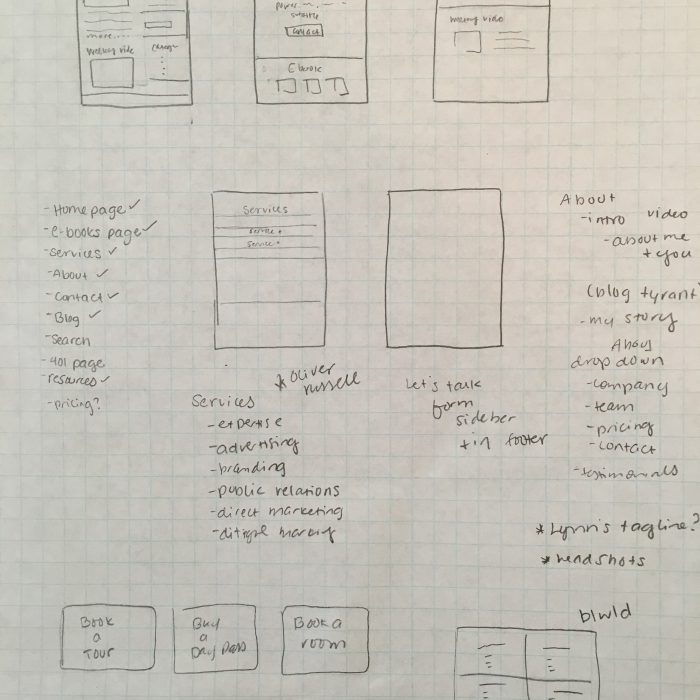 more....
working video
Ebook
contact
working video
- Homepage ✓
- e-books page ✓
- services ✓
- About ✓
- Contact ✓
- Blog ✓
- Search
- 401 page
- resources ✓
- pricing?
Services
service +
service +
* Oliver
russell
Services
- expertise
- advertising
- branding
- public relations
- direct marketing
Let's talk
form
sidebar
+ in footer
About
- intro video
- about me
+ you
(blog tyrant)
- my story
About
drop down
- company
- team
- pricing
- contact
- testimonials
* Lynn's tagline?
* headshots
Book
a
Tour
Buy
a
Day Pass
Book a
room
blwld